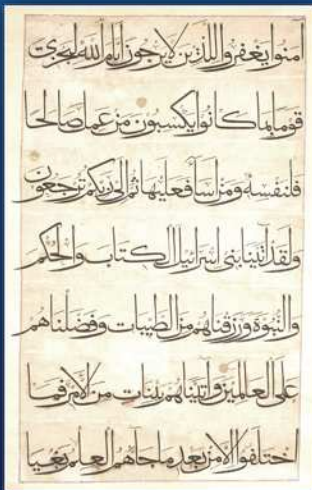 امنوا يغفروا للذين لا يرجون ايام الله ليجزى
قوما بما كانوا يكسبون من عمل صالحا
فلنفسه ومن اسآ فعليها ثم الى ربكم ترجعون
ولقد آتينا بنى اسرائيل الكتاب والحكم
والنبوة ورزقناهم من الطيبات وفضلناهم
على العالمين وآتيناهم بينات من الامر فما
اختلفوا الا من بعد ما جاهم العلم بغيا